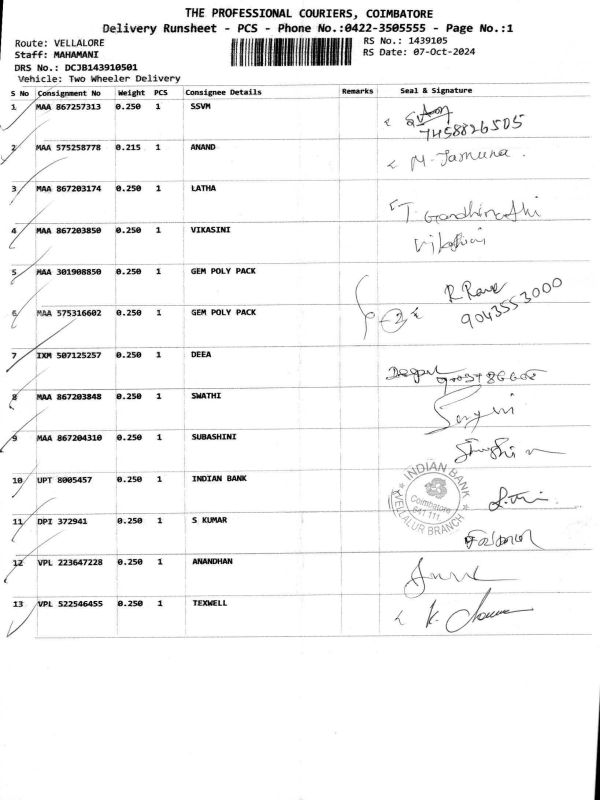 THE PROFESSIONAL COURIERS, COIMBATORE
Delivery Runsheet - PCS - Phone No.:0422-3505555 - Page No.:1
Route: VELLALORE RS No.: 1439105
Staff: MAHAMANI RS Date: 07-Oct-2024
DRS No.: DCJB143910501
Vehicle: Two Wheeler Delivery
S No Consignment No Weight PCS Consignee Details Remarks Seal & Signature
1 MAA 867257313 0.250 1 SSVM
7458826505
2 MAA 575258778 0.215 1 ANAND M. Jamuna.
3 MAA 867203174 0.250 1 LATHA
T. Gandhimathi
4 MAA 867203850 0.250 1 VIKASINI Vikashini
5 MAA 301908850 0.250 1 GEM POLY PACK
6 MAA 575316602 0.250 1 GEM POLY PACK 2 9043553000
7 IXM 507125257 0.250 1 DEEA
8 MAA 867203848 0.250 1 SWATHI
9 MAA 867204310 0.250 1 SUBASHINI
10 UPT 8005457 0.250 1 INDIAN BANK
INDIAN BANK
Coimbatore
641 111
VELLALUR BRANCH
11 DPI 372941 0.250 1 S KUMAR
12 VPL 223647228 0.250 1 ANANDHAN
13 VPL 522546455 0.250 1 TEXWELL